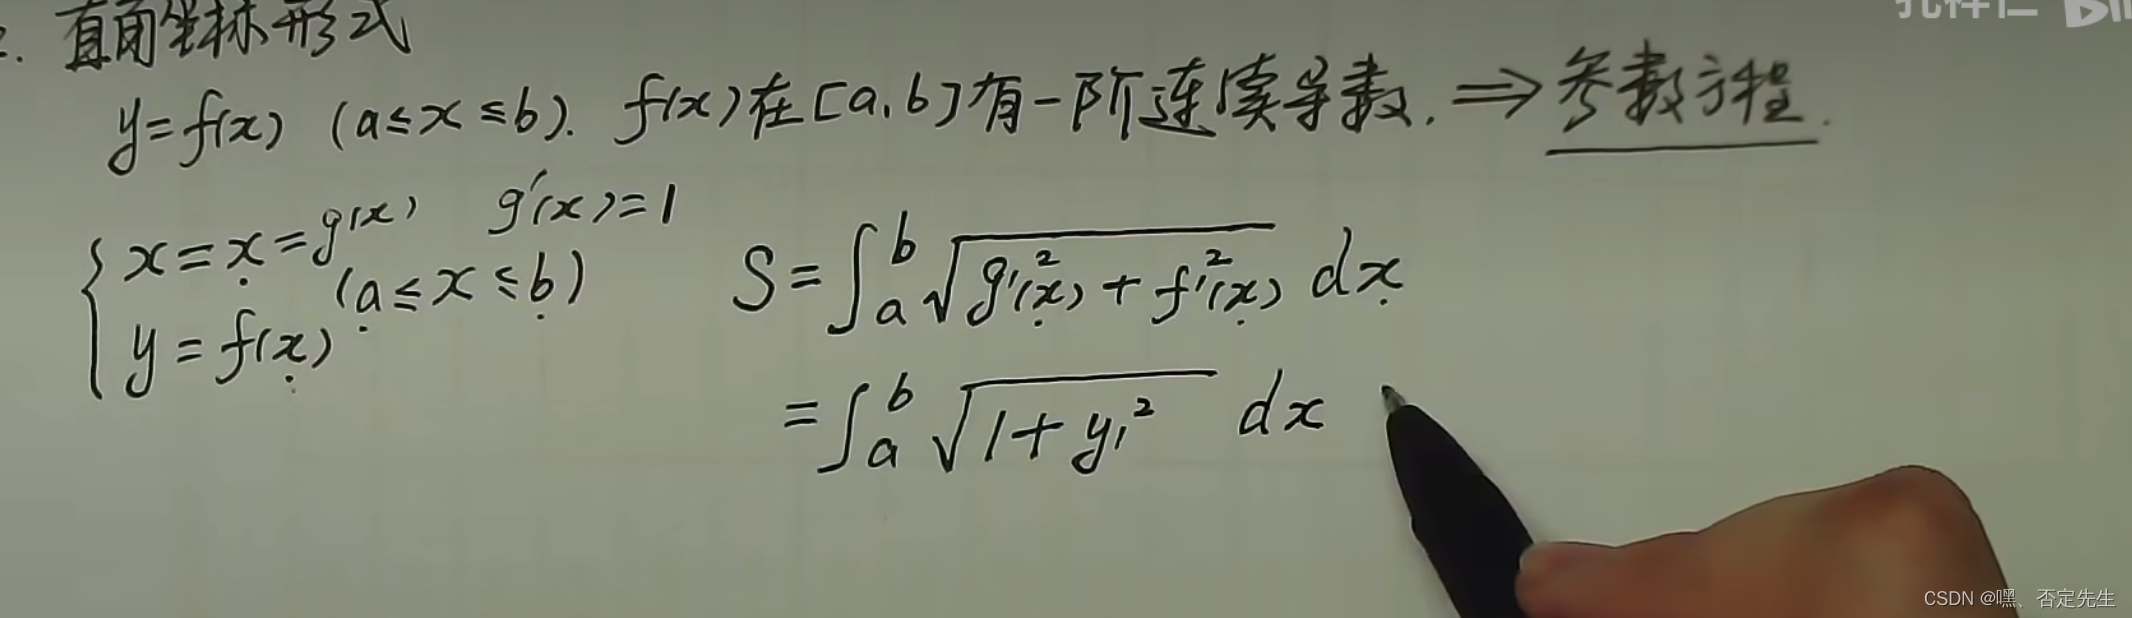 2. 直角坐标形式
y=f(x) (a≤x≤b). f(x)在[a,b]有一阶连续导数. ⇒参数方程.
{ x=x=g(x) g'(x)=1
(a≤x≤b)
y=f(x)
S=∫_a^b √(g'²(x)+f'²(x)) dx
=∫_a^b √(1+y'²) dx
CSDN @嘿、否定先生